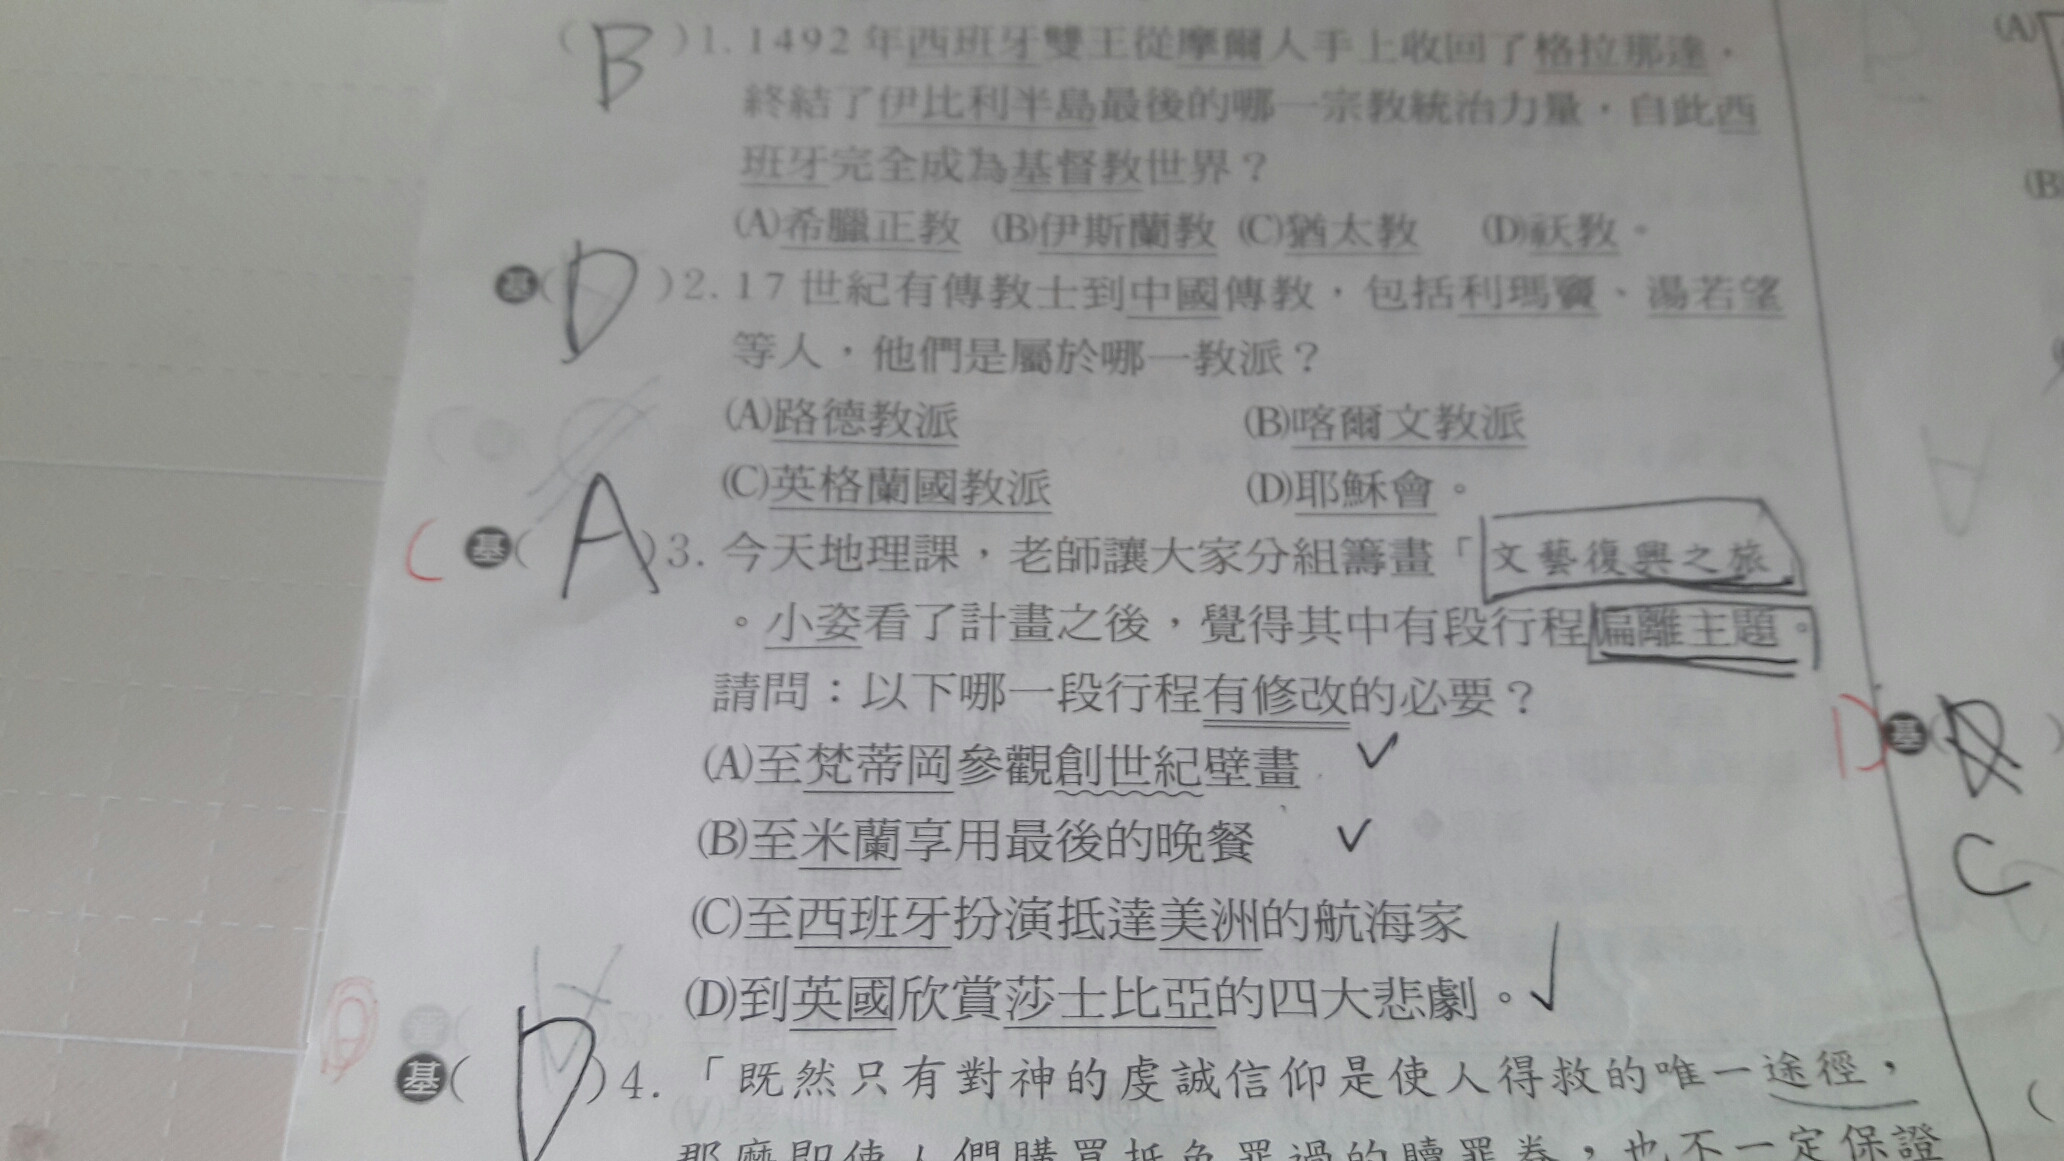 (B)1. 1492年西班牙雙王從摩爾人手上收回了格拉那達，
終結了伊比利半島最後的哪一宗教統治力量，自此西
班牙完全成為基督教世界？
(A)希臘正教 (B)伊斯蘭教 (C)猶太教 (D)祆教。
基(D)2. 17世紀有傳教士到中國傳教，包括利瑪竇、湯若望
等人，他們是屬於哪一教派？
(A)路德教派 (B)喀爾文教派
(C)英格蘭國教派 (D)耶穌會。
C 基(A)3. 今天地理課，老師讓大家分組籌畫「文藝復興之旅
。小姿看了計畫之後，覺得其中有段行程偏離主題。
請問：以下哪一段行程有修改的必要？
(A)至梵蒂岡參觀創世紀壁畫 ✓
(B)至米蘭享用最後的晚餐 ✓
(C)至西班牙扮演抵達美洲的航海家
(D)到英國欣賞莎士比亞的四大悲劇。✓
基(D)4. 「既然只有對神的虔誠信仰是使人得救的唯一途徑，
那麼即使人們購買抵免罪過的贖罪券，也不一定保證
(A)
(B
D 基( )
C